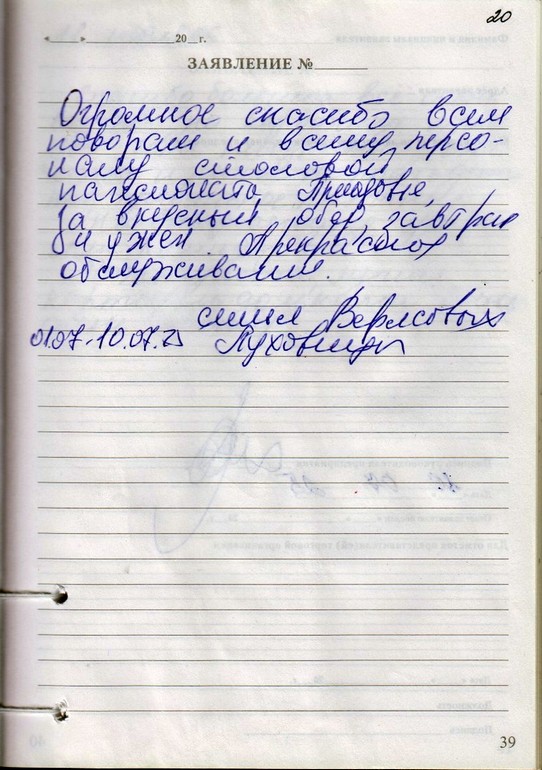 20
« » 20 г.
ЗАЯВЛЕНИЕ №
Огромное спасибо всем
поварам и всему персо-
налу столовой
пансионата Приазовье,
за вкусный обед, завтрак
и ужен. Прекрасное
обслуживание.
семья
01.07-10.07.25 Луховицы
39